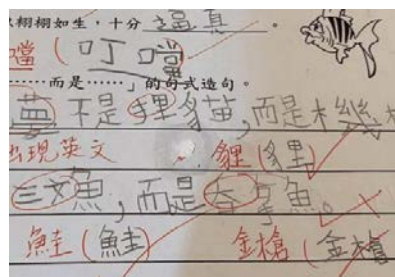 栩栩如生，十分逼真。
噹（叮噹
……而是……」的句式造句。
夢不是貍貓，而是木幾
出現英文 貍（貍）
三文魚，而是吞拿魚。
鮭（鮭） 金槍（金槍